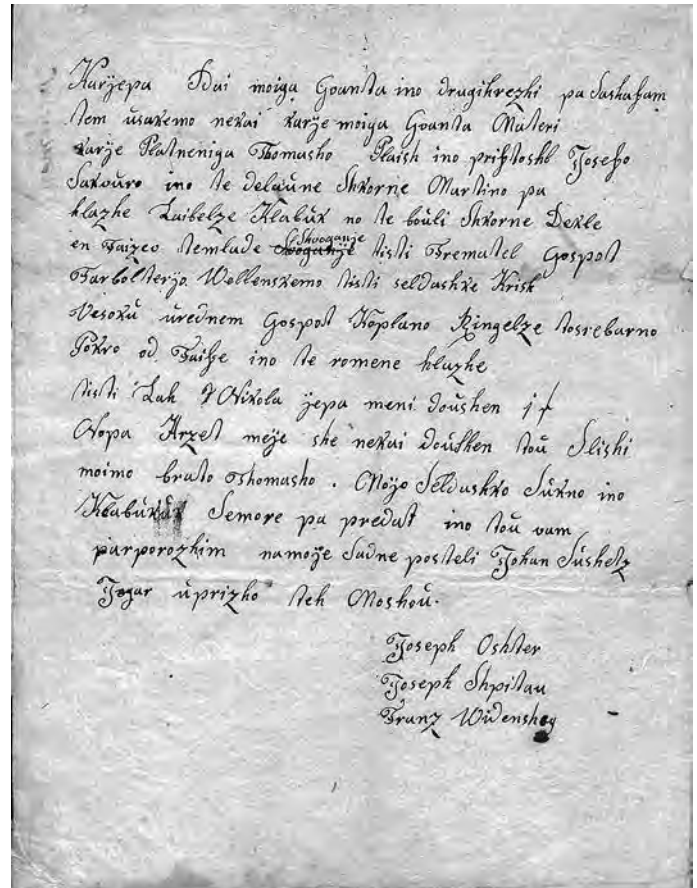 Karjepa Dai moiga Goanta ino drugihrezhi pa Sashaſam
tem usakemo nekai karje moiga Goanta Materi
karje Platneniga Thomasho Plaish ino priſhtoshl Joseſo
Sakouro ino te delaune Shkorne Martino pa
hlazhe Laibelze Klabuk no te bouli Shkorne Dekle
en Faizeo temlade Shvoganje tisti Frematel Gospot
Farbolterjo Wollenskemo tisti seldashke Krish
Vesoku urednem Gospot Koplano Ringelze tosrebarno
Pokro od Faiſse ino te romene hlazhe
tisti Lah Nikola jepa meni doushen
Nopa Arzet meje she nekai doushen tou Slishi
moimo brato Thomasho. Mojo Seldashko Sukno ino
Klabuk Semore pa predat ino tou vam
parporozhim namoje Sadne posteli Johan Sushetz
Jogar uprizho teh Moshou.
Joseph Oshter
Joseph Shpitau
Franz Widensheg